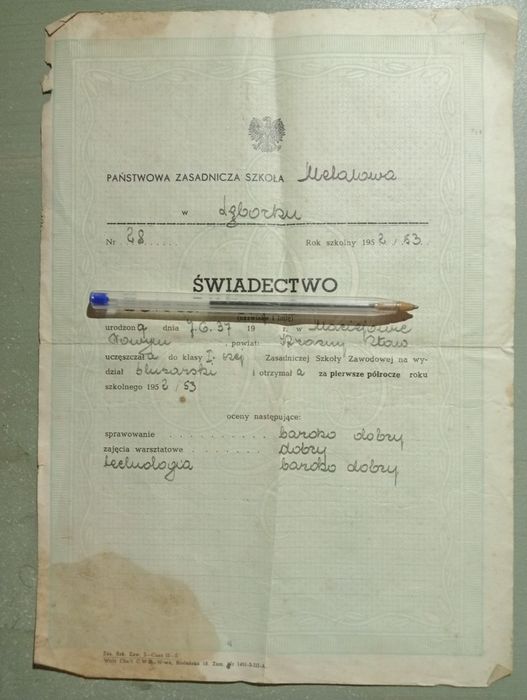 PAŃSTWOWA ZASADNICZA SZKOŁA Metalowa
w Lęborku
Nr 28..... Rok szkolny 1952/53.
ŚWIADECTWO
(nazwisko i imię)
urodzona dnia 7.6.37 19 r. w
powiat: Krasny Staw
uczęszczała do klasy I-szej Zasadniczej Szkoły Zawodowej na wy-
dział ślusarski i otrzymała za pierwsze półrocze roku
szkolnego 1952/53
oceny następujące:
sprawowanie . . . . . . . . . . bardzo dobry
zajęcia warsztatowe . . . . . . . dobry
technologia bardzo dobry
Zas. Szk. Zaw. 5-Czas II-5